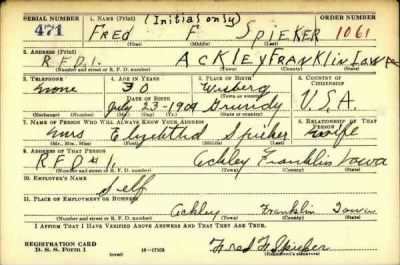 SERIAL NUMBER 1. NAME (Print) (Initial only) ORDER NUMBER
471 FRED F SPIEKER 1061
(First) (Middle) (Last)
2. ADDRESS (Print)
R.F.D.1. ACKLEY FRANKLIN IOWA
(Number and street or R. F. D. number) (Town) (County) (State)
3. TELEPHONE 4. AGE IN YEARS 5. PLACE OF BIRTH 6. COUNTRY OF CITIZENSHIP
none 30
DATE OF BIRTH (Town or county)
July 23-1909 Grundy U.S.A.
(Exchange) (Number) (Mo.) (Day) (Yr.) (State or country)
7. NAME OF PERSON WHO WILL ALWAYS KNOW YOUR ADDRESS 8. RELATIONSHIP OF THAT PERSON
Mrs Elizabeth Spieker
(Mr., Mrs., Miss) (First) (Middle) (Last)
9. ADDRESS OF THAT PERSON
R F D #1. Ackley Franklin Iowa
(Number and street or R. F. D. number) (Town) (County) (State)
10. EMPLOYER'S NAME
Self
11. PLACE OF EMPLOYMENT OR BUSINESS
Ackley Franklin Iowa
(Number and street or R. F. D. number) (Town) (County) (State)
I AFFIRM THAT I HAVE VERIFIED ABOVE ANSWERS AND THAT THEY ARE TRUE.
REGISTRATION CARD
D. S. S. Form 1 (over) Fred F Spieker